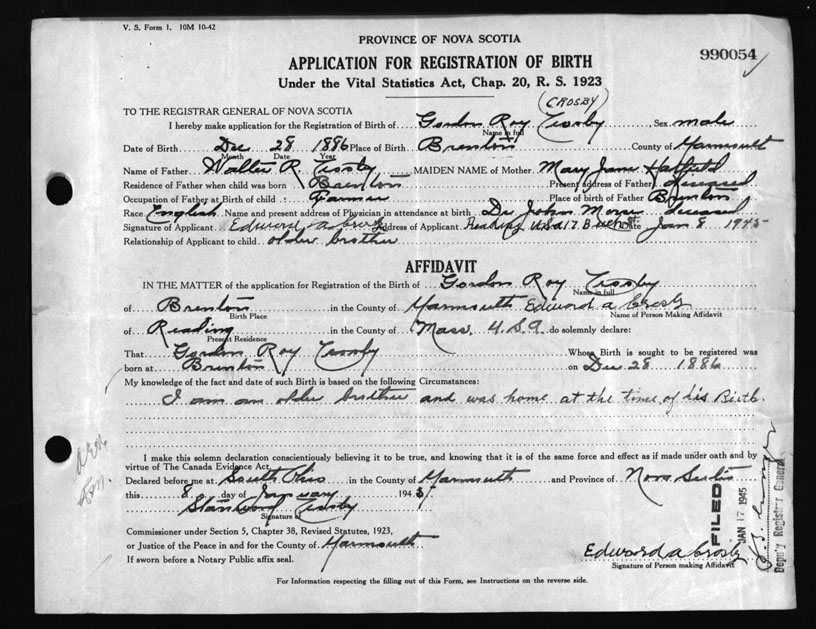 V. S. Form 1. 10M 10-42
PROVINCE OF NOVA SCOTIA
990054
APPLICATION FOR REGISTRATION OF BIRTH
Under the Vital Statistics Act, Chap. 20, R. S. 1923
(CROSBY)
TO THE REGISTRAR GENERAL OF NOVA SCOTIA
I hereby make application for the Registration of Birth of Gordon Roy Crosby Sex male
Name in full
Date of Birth Dec 28 1886 Place of Birth Brenton County of Yarmouth
Month Date Year
Name of Father Walter R. Crosby MAIDEN NAME of Mother Mary Jane Hatfield
Residence of Father when child was born Brenton Present address of Father deceased
Occupation of Father at Birth of child Farmer Place of birth of Father Brenton
Race English Name and present address of Physician in attendance at birth Dr John Morse deceased
Signature of Applicant Edward A Crosby Address of Applicant Reading U.S.A 17 B St Date Jan 8 1945
Relationship of Applicant to child older brother
AFFIDAVIT
IN THE MATTER of the application for Registration of the Birth of Gordon Roy Crosby
Name in full
of Brenton in the County of Yarmouth Edward A Crosby
Birth Place Name of Person Making Affidavit
of Reading in the County of Mass. U.S.A. do solemnly declare:
Present Residence
That Gordon Roy Crosby Whose Birth is sought to be registered was
born at Brenton on Dec 28 1886
My knowledge of the fact and date of such Birth is based on the following Circumstances:
I am an older brother and was home at the time of his Birth.
I make this solemn declaration conscientiously believing it to be true, and knowing that it is of the same force and effect as if made under oath and by
virtue of The Canada Evidence Act.
Declared before me at South Ohio in the County of Yarmouth and Province of Nova Scotia
this 8 day of January 1945
Stanwood Crosby
Signature of
Commissioner under Section 5, Chapter 38, Revised Statutes, 1923,
or Justice of the Peace in and for the County of Yarmouth
If sworn before a Notary Public affix seal.
Edward A Crosby
Signature of Person making Affidavit
For Information respecting the filling out of this Form, see Instructions on the reverse side.
FILED
JAN 17 1945
Deputy Registrar General